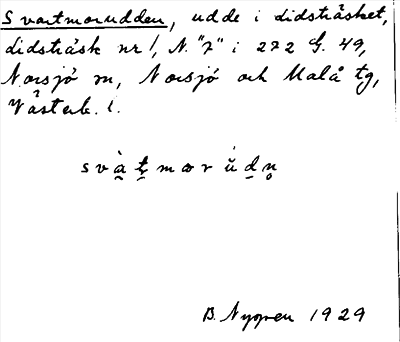 Svartmorudden, udde i didsträsket,
didsträsk nr 1, N. "7" i 272 G. 49,
Norsjö sn, Norsjö och Malå tg,
Västerb. l.
B. Nygren 1929